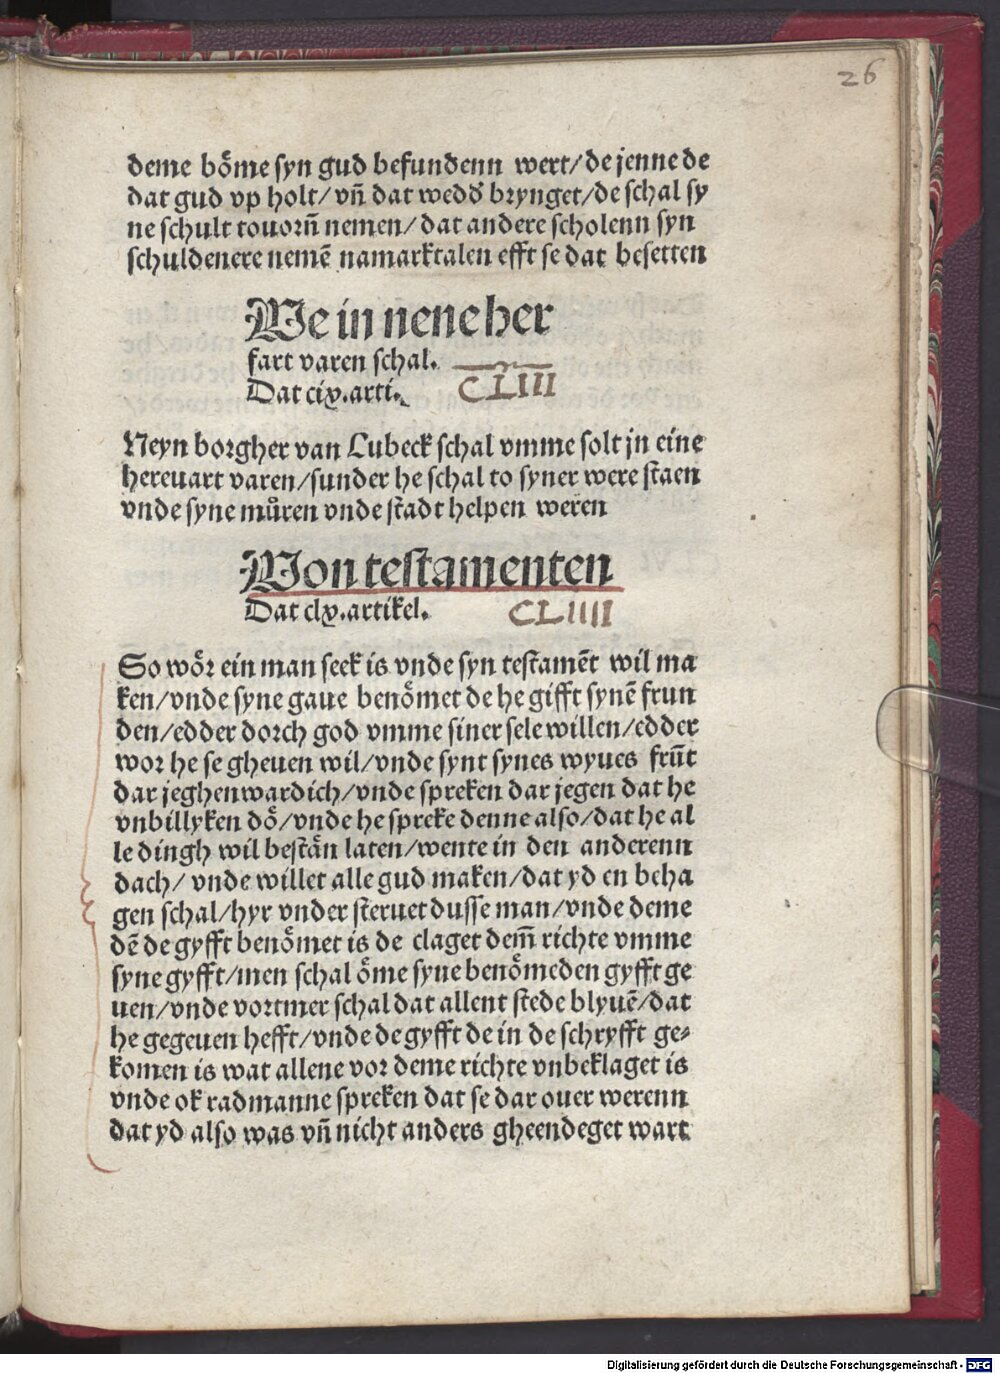 26
deme bo&#868;me syn gud befundenn wert/de jenne de
dat gud vp holt/vn̄ dat wedd' brynget/de schal sy
ne schult touorn̄ nemen/dat andere scholenn syn
schuldenere nemē namarktalen efft se dat besetten
We in nene her
fart varen schal.
Dat cix.arti. CLIII
Neyn borgher van Lubeck schal vmme solt jn eine
hereuart varen/sunder he schal to syner were staen
vnde syne můren vnde stadt helpen weren
Von testamenten
Dat clx.artikel. CLIIII
So woͤr ein man seek is vnde syn testamēt wil ma
ken/vnde syne gaue benoͤmet de he gifft synē frun
den/edder dorch god vmme siner sele willen/edder
wor he se gheuen wil/vnde synt synes wyues frūt
dar jeghenwardich/vnde spreken dar jegen dat he
vnbillyken doͤ/vnde he spreke denne also/dat he al
le dingh wil bestaͤn laten/wente in den anderenn
dach/ vnde willet alle gud maken/dat yd en beha
gen schal/hyr vnder steruet dusse man/vnde deme
dē de gyfft benoͤmet is de claget dem̄ richte vmme
syne gyfft/men schal oͤme syne benoͤmeden gyfft ge
uen/vnde vortmer schal dat allent stede blyuē/dat
he gegeuen hefft/vnde de gyfft de in de schryfft ge⸗
komen is wat allene vor deme richte vnbeklaget is
vnde ok radmanne spreken dat se dar ouer werenn
dat yd also was vn̄ nicht anders gheendeget wart
Digitalisierung gefördert durch die Deutsche Forschungsgemeinschaft - DFG